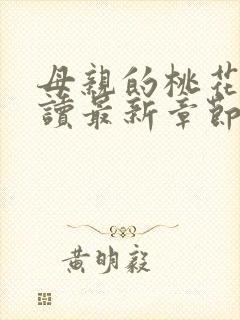 母親的桃花
讀最新章節
黃明毅